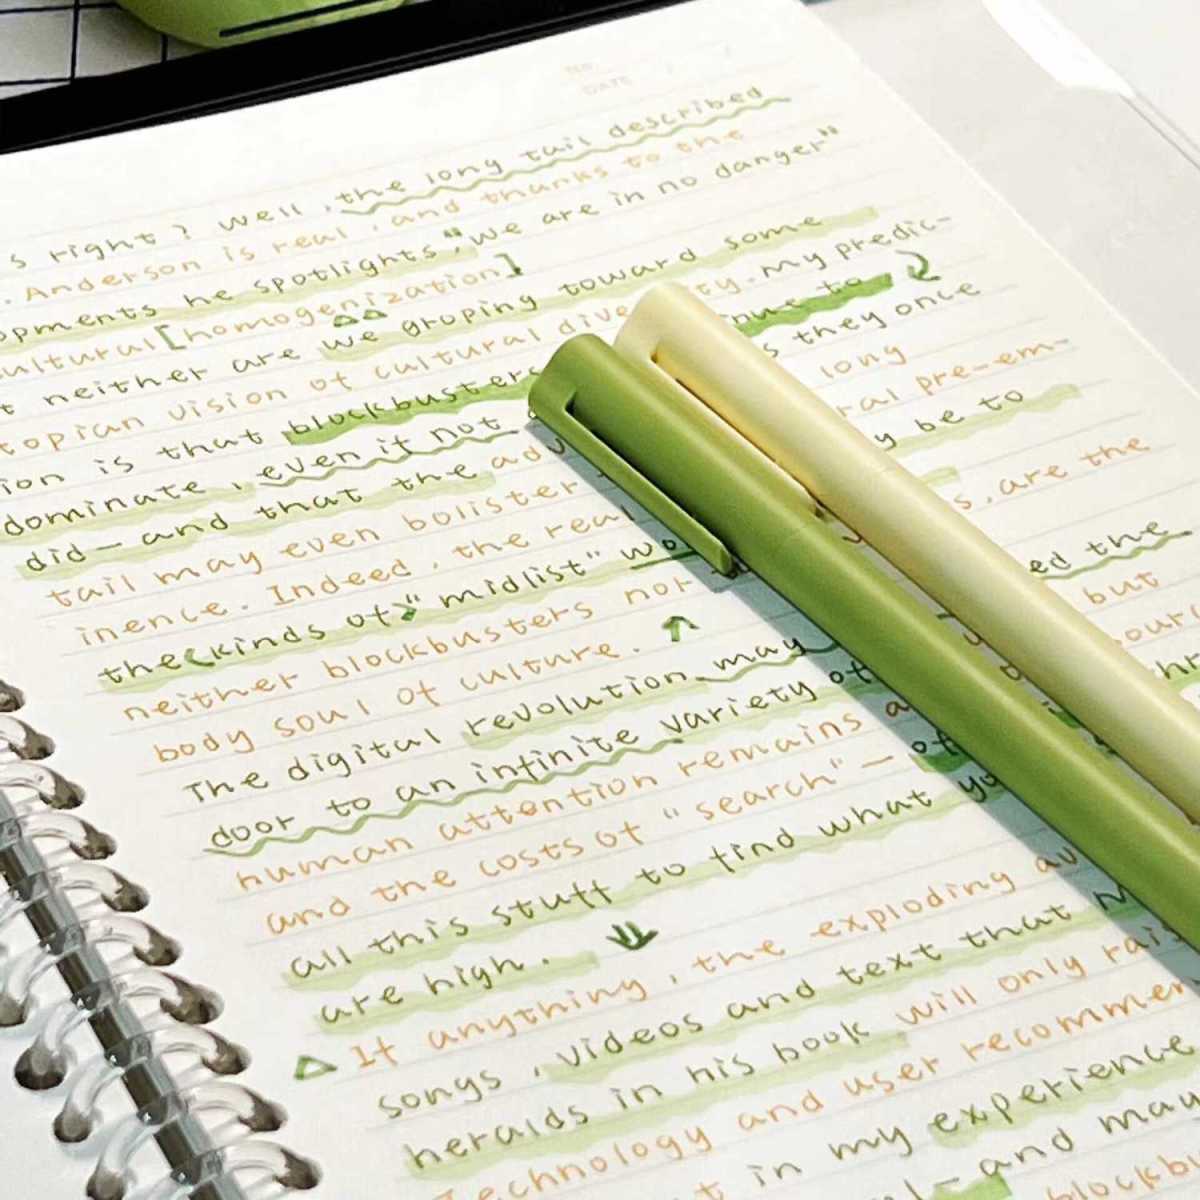 NO.
DATE
s right? Well, the long tail described
. Anderson is real, and thanks to the
opments he spotlights, "we are in no danger"
ultural [homogenization]
t neither are we groping toward some
topian vision of cultural dive ty. My predic-
ion is that blockbusters nue to
dominate, even if not s they once
did — and that the adv long
tail may even bolister ral pre-em-
inence. Indeed, the real y be to
the <kinds of> "midlist" wo s, are the
neither blockbusters nor
body soul of culture. ed the
The digital revolution may but
door to an infinite variety of
human attention remains
and the costs of "search" — of
all this stuff to find what
are high.
If anything, the exploding
songs, videos and text that
heralds in his book will only
technology and user
t in my experience
and may